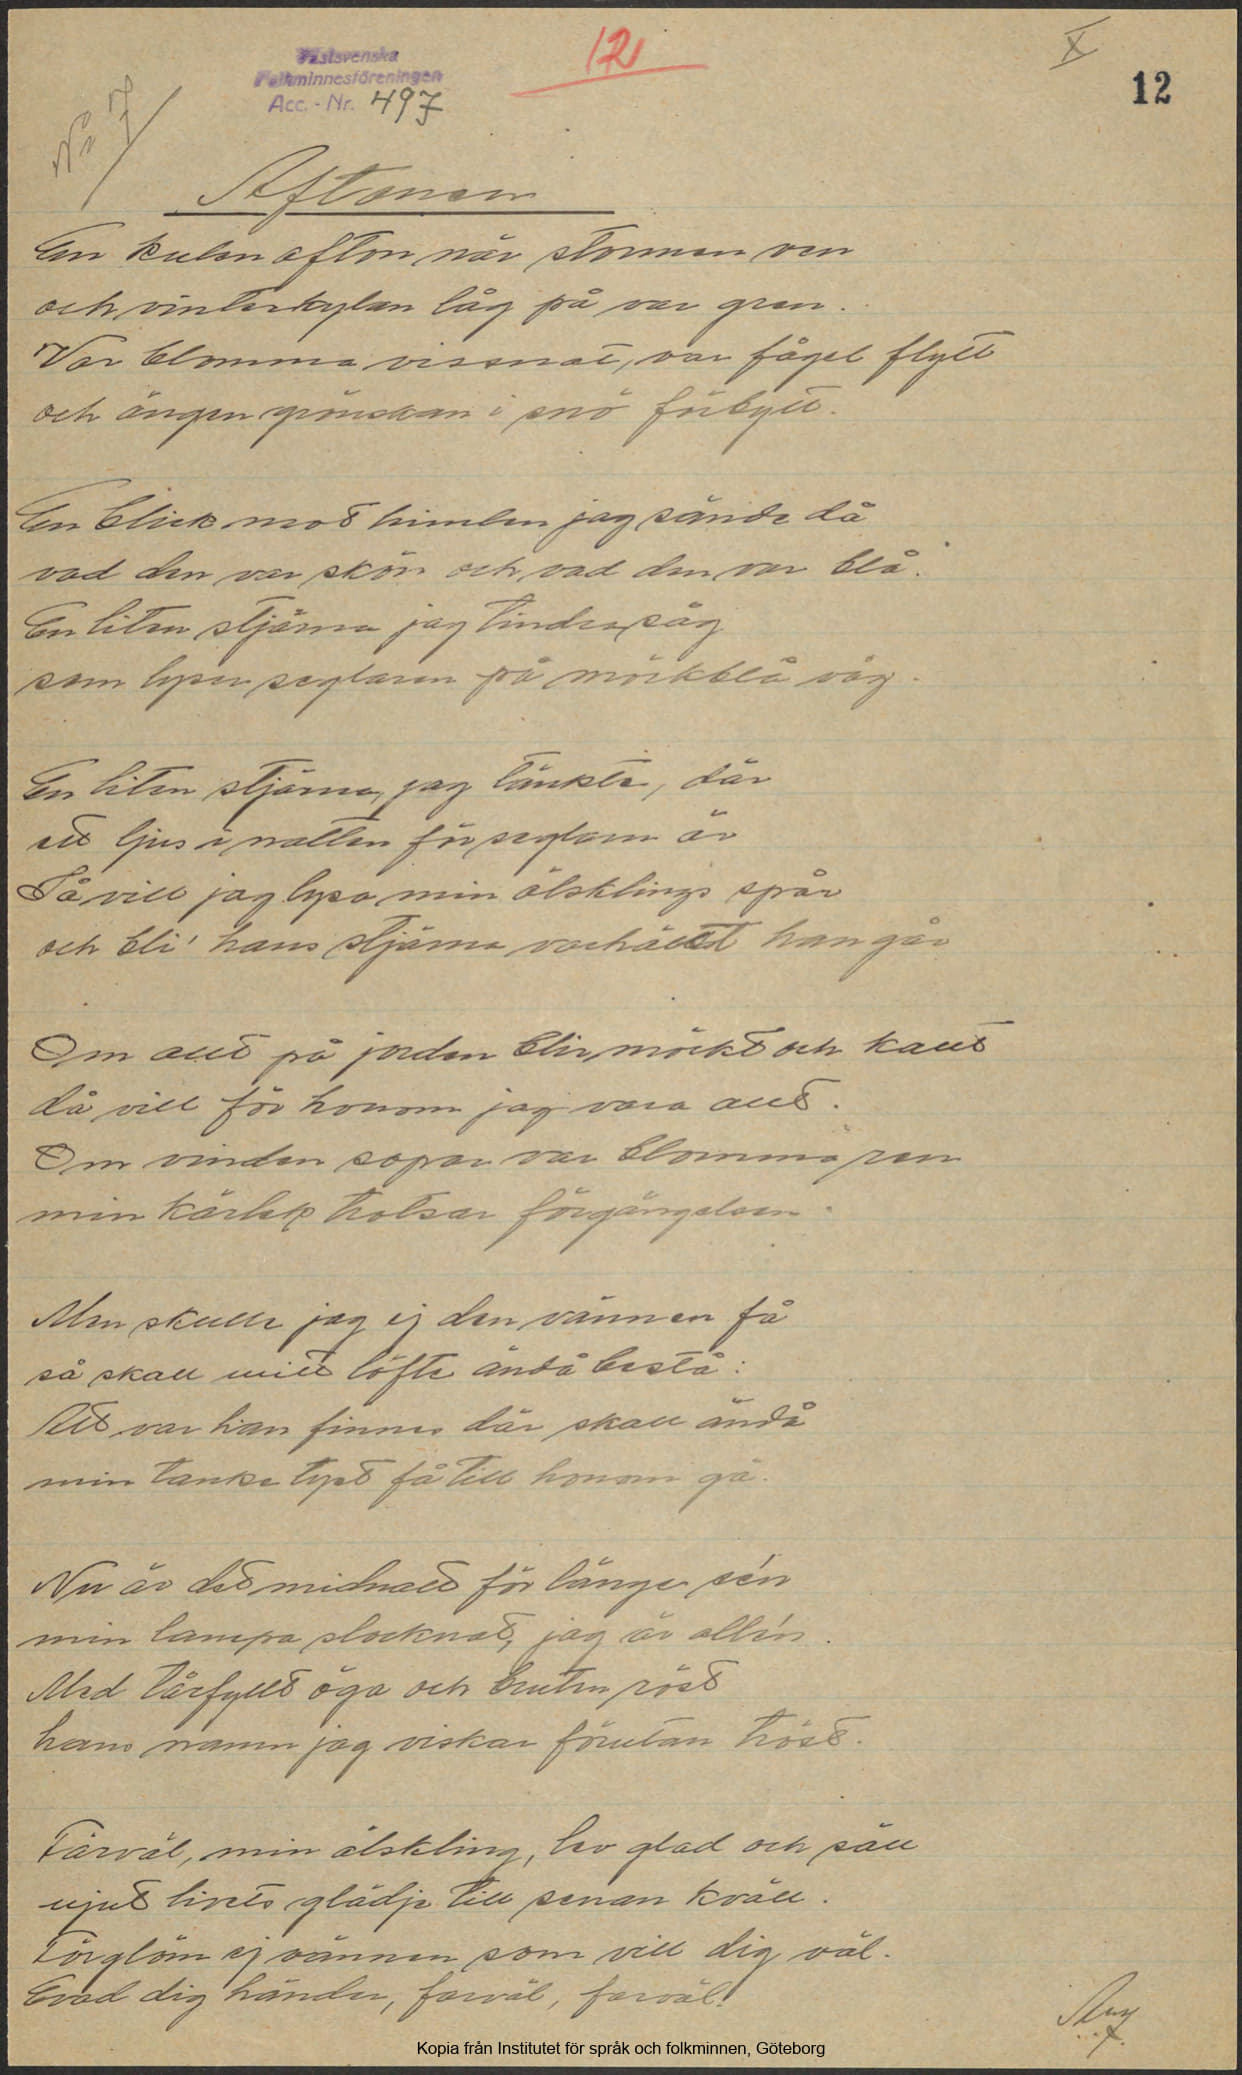 12
X
Västsvenska
Folkminnesföreningen
Acc. - Nr. 497
12
No 7
Aftonen
En kulen afton när stormen ven
och vinterkylan låg på var gren.
Var blomma vissnat, var fågel flytt
och ängen grönskan i snö förbytt.
En blick mot himlen jag sände då
vad den var skön och vad den var blå.
En liten stjärna jag tindra såg
som lyser seglaren på mörkblå våg.
En liten stjärna, jag tänkte, där
ett ljus i natten för seglarn är
Så vill jag lysa min älsklings spår
och bli' hans stjärna varhälst han går
Om allt på jorden blir mörkt och kallt
då vill för honom jag vara allt.
Om vinden sopar var blomma ren
min kärlek trotsar förgängelsen.
Men skulle jag ej den vännen få
så skall mitt löfte ändå bestå:
Att var han finnes där skall ändå
min tanke tyst få till honom gå.
Nu är det midnatt för länge se'n
min lampa slocknat, jag är allén.
Med tårfyllt öga och bruten röst
hans namn jag viskar förutan tröst.
Farväl, min älskling, lev glad och säll
njut livets glädje till senan kväll.
Förglöm ej vännen som vill dig väl.
Evad dig händer, farväl, farväl!
Kopia från Institutet för språk och folkminnen, Göteborg